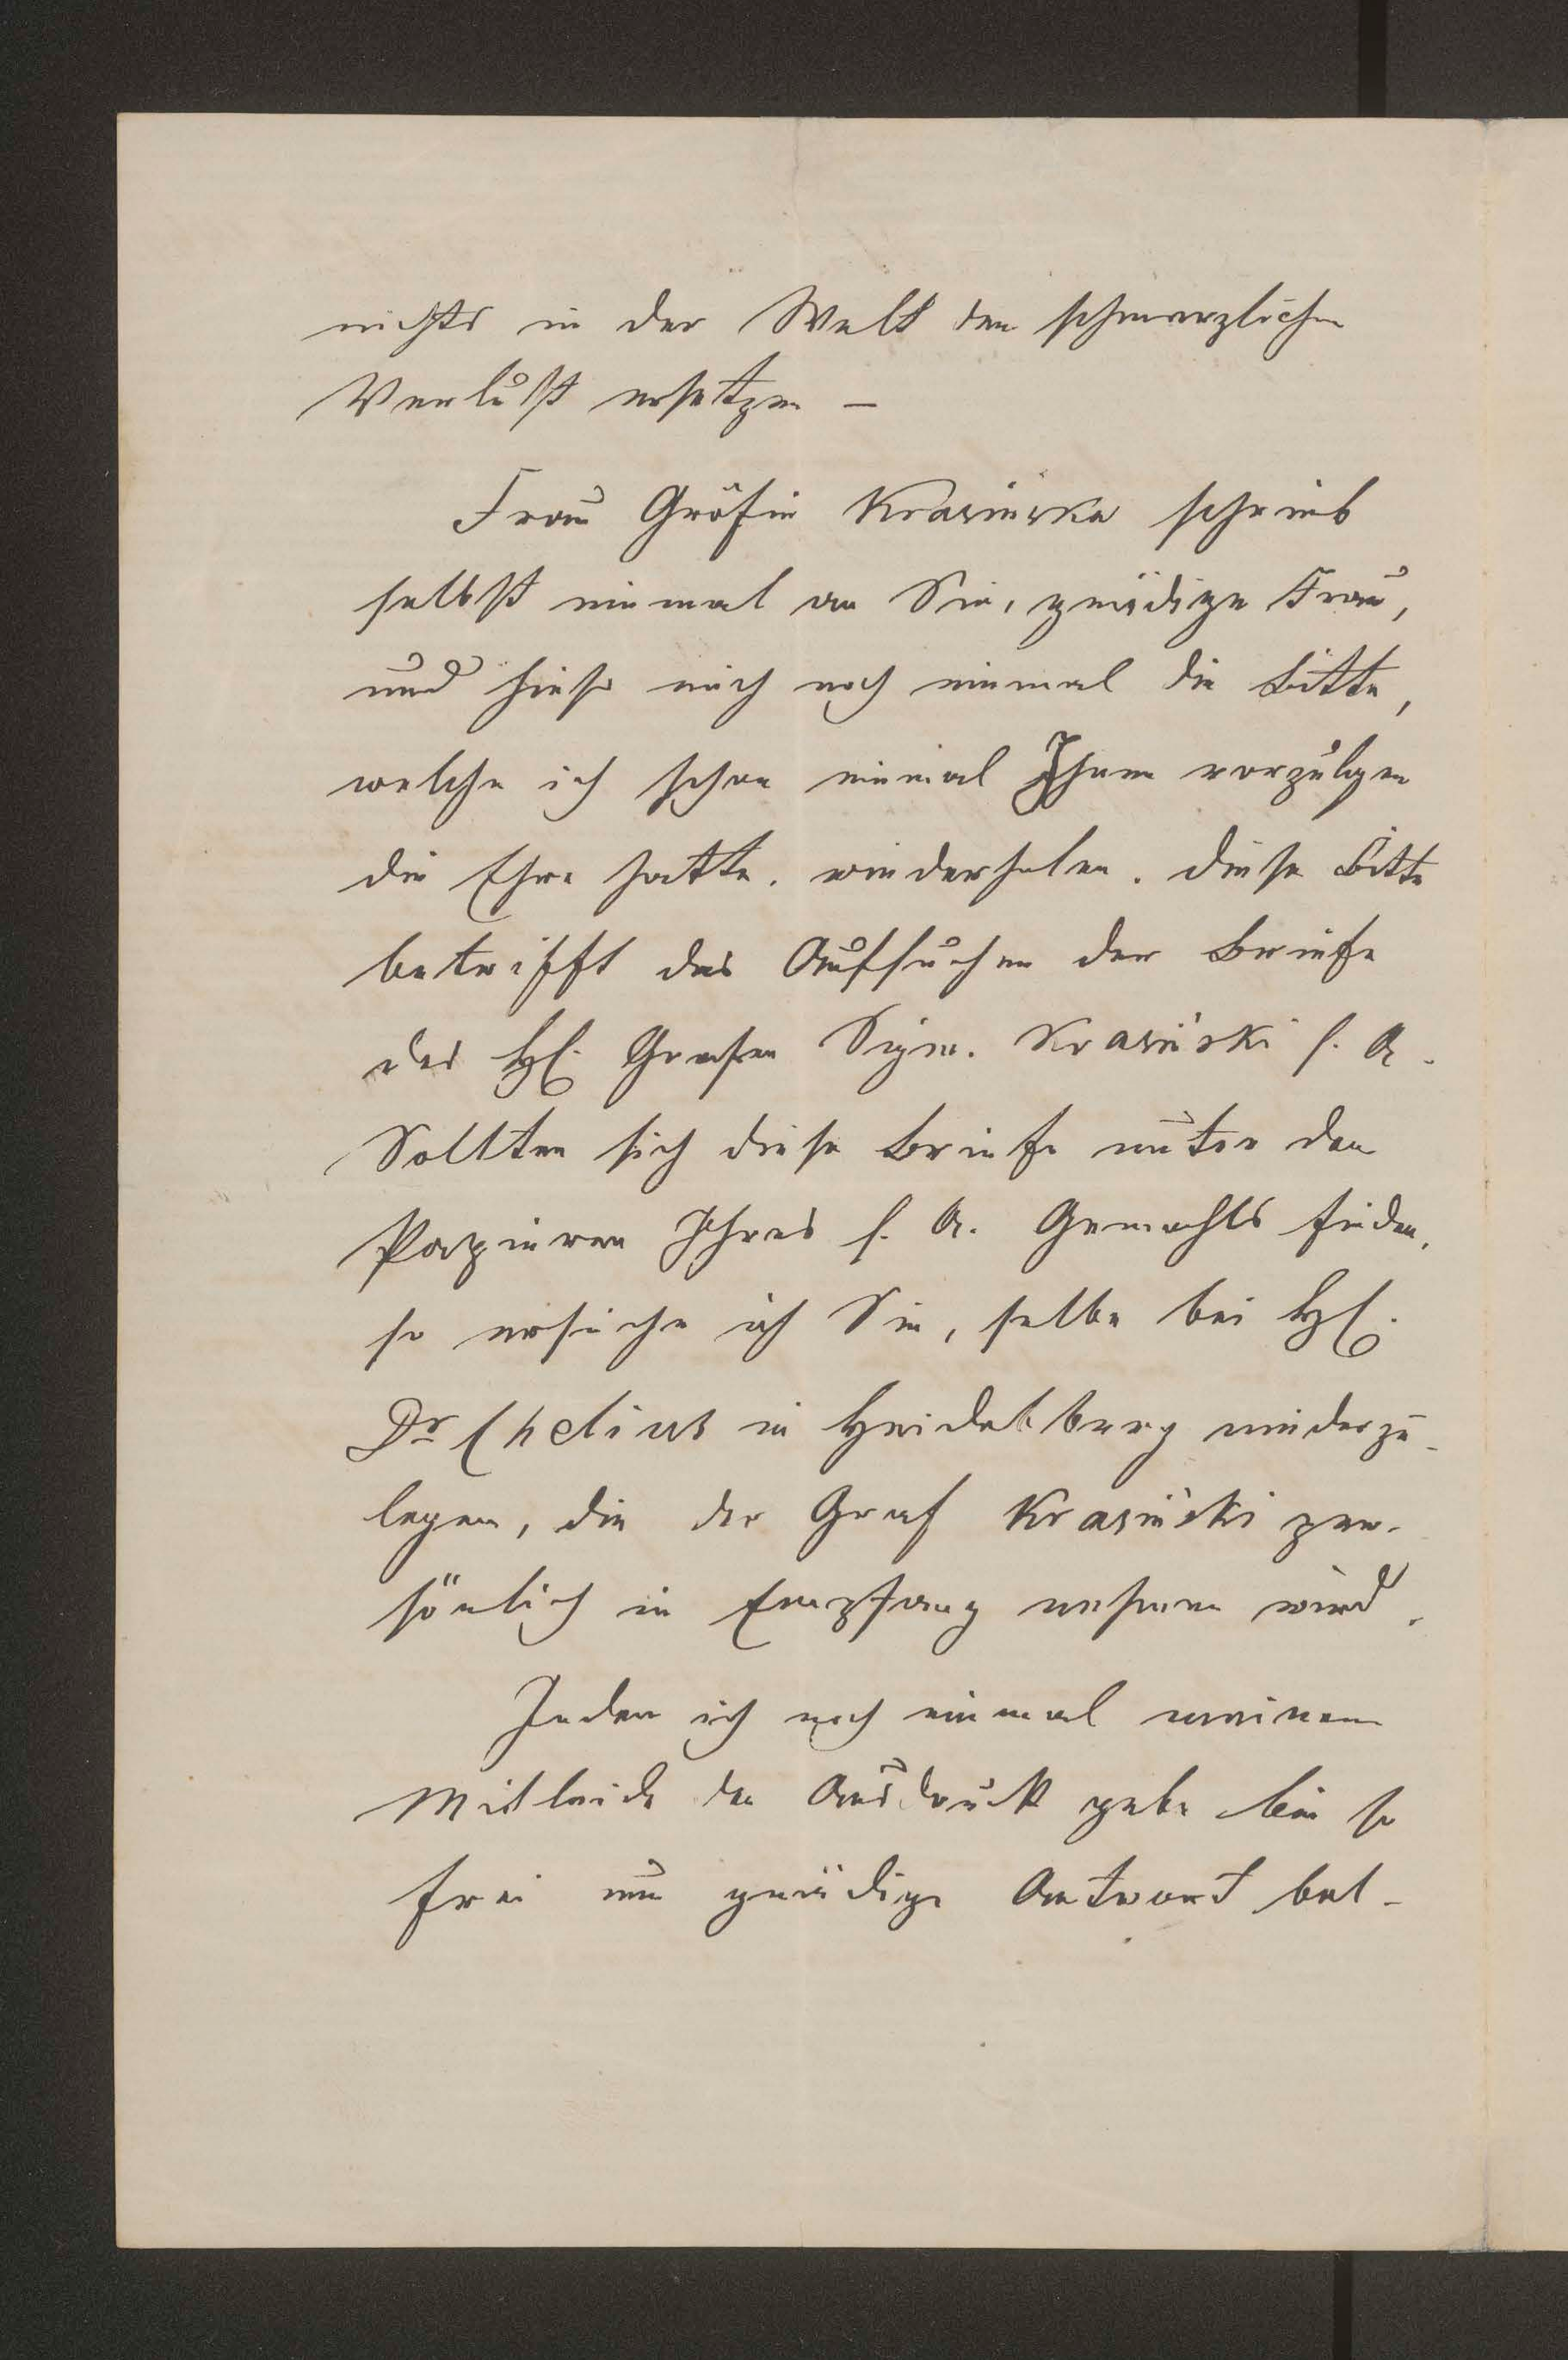 nichts in der Welt den schmerzlichen
Verlust ersetzen –
Frau Gräfin Krasińska schrieb
selbst einmal an Sie, gnädige Frau,
und hiess mich noch einmal die Bitte,
welche ich schon einmal Ihnen vorzulegen
die Ehre hatte, wiederholen. Diese Bitte
betrifft das Aufsuchen der Briefe
des H. Grafen Sigm. Krasiński s. A.
Sollten sich diese Briefe unter den
Papieren Ihres s. A. Gemahls finden,
so ersuche ich Sie, selbe bei H.
Dr Chelius in Heidelberg niederzu-
legen, die der Graf Krasiński per-
sönlich in Empfang nehmen wird.
Indem ich noch einmal meinem
Mitleide den Ausdruck gebe bin so
frei um gnädige Antwort bal-